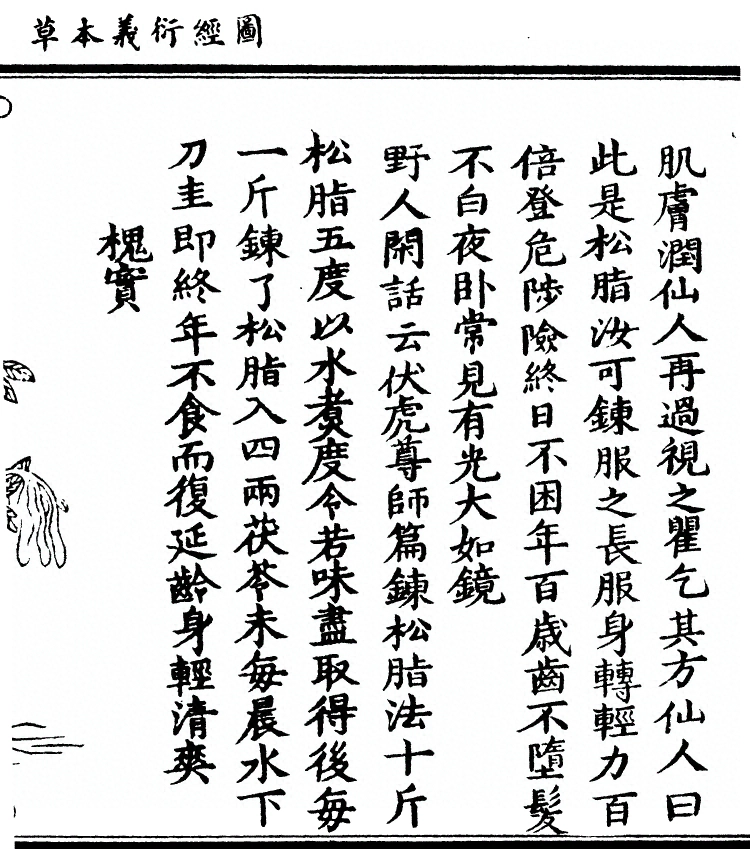 草本義衍經圖
肌膚潤仙人再過視之瞿乞其方仙人曰
此是松脂汝可鍊服之長服身轉輕力百
倍登危陟險終日不困年百歲齒不墮髮
不白夜卧常見有光大如鏡
野人閑話云伏虎尊師篇鍊松脂法十斤
松脂五度以水煑度令若味盡取得後每
一斤鍊了松脂入四兩茯苓末每晨水下
刀圭即終年不食而復延齡身輕清爽
槐實